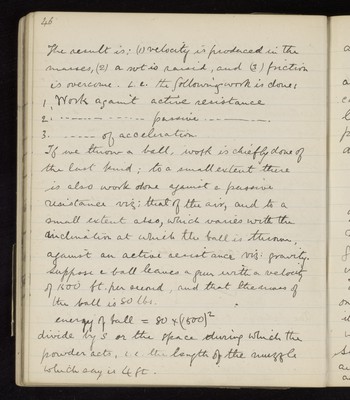 46
The result is: (1) velocity is produced in the
masses, (2) a wt is raised, and (3) friction
is overcome. i.e. the following work is done:
1. Work against active resistance
2. ........ passive ........
3. ..... of acceleration
If we throw a ball, work is chiefly done of
the last kind; to a small extent there
is also work done against a passive
resistance viz: that of the air, and to a
small extent also, which varies with the
inclination at which the ball is thrown,
against an active resistance viz: gravity.
Suppose a ball leaves a gun with a velocity
of 1500 ft. per second, and that the mass of
the ball is 80 lbs.
energy of ball = 80 × (1500)²
divide by s or the space during which the
powder acts, i.e. the length of the muzzle
which say is 4 ft.